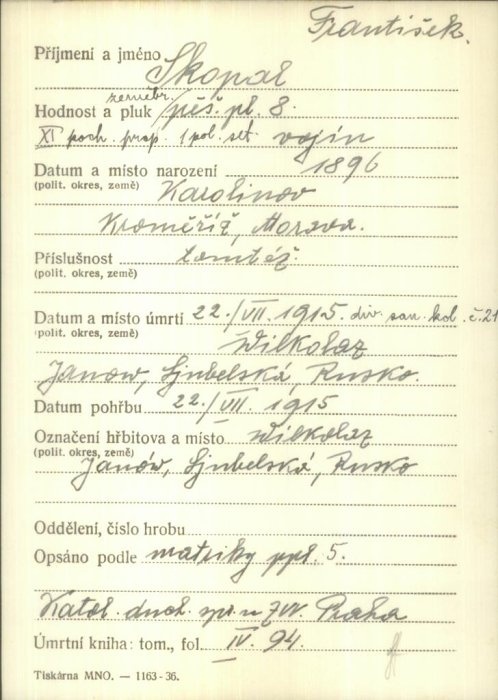 František.
Příjmení a jméno Skopal
zeměbr.
Hodnost a pluk pěš. pl. 8.
XI poch. prap. 1 pol. set. vojín
Datum a místo narození 1896
(polit. okres, země) Karolinov
Kroměříž, Morava.
Příslušnost tamtéž.
(polit. okres, země)
Datum a místo úmrtí 22./VII. 1915. div. san. kol. č. 21
(polit. okres, země) Wilkolaz
Janow, Ljubelská, Rusko.
Datum pohřbu 22./VII. 1915
Označení hřbitova a místo Wilkolaz
(polit. okres, země)
Janów, Ljubelská, Rusko
Oddělení, číslo hrobu
Opsáno podle matriky ppl. 5.
Katol. duch. spr. u ZVV. Praha
Úmrtní kniha: tom., fol. IV. 94.
Tiskárna MNO. — 1163-36.